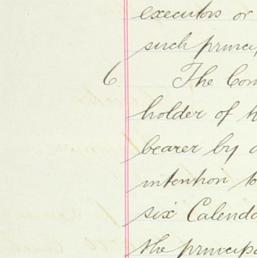 executors or
such princip
6. The Com
holder of h
bearer by a
intention to
six Calenda
the principa